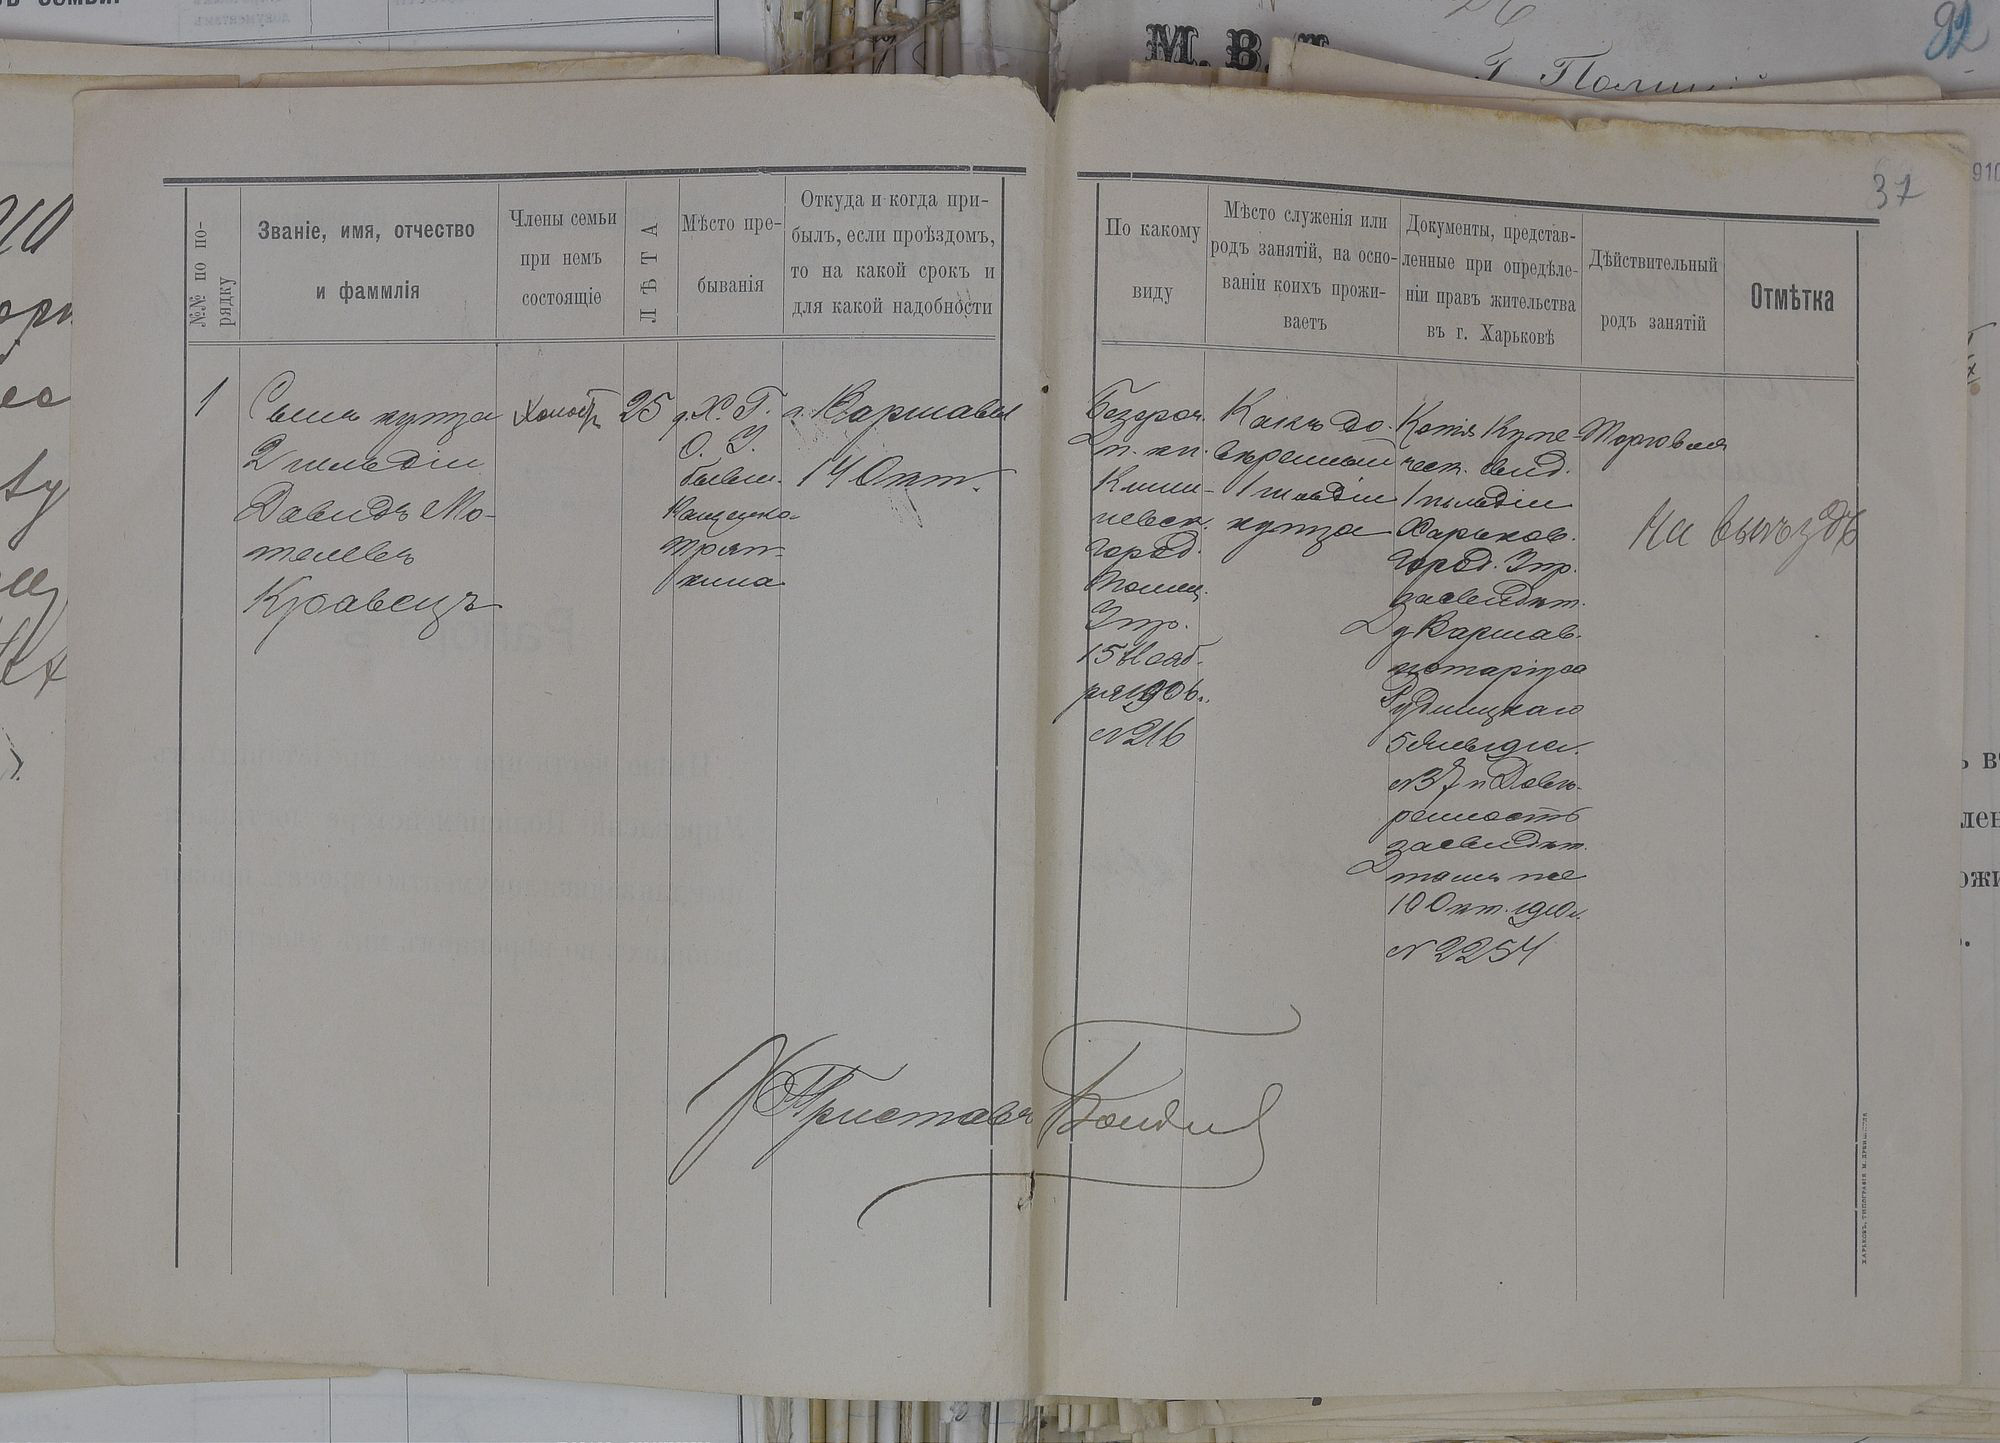 М. В. Д.
92
Г. Полиц
37
910
№№ по по-
рядку
Званіе, имя, отчество
и фаммлія
Члены семьи
при немъ
состоящіе
ЛѢТА
Мѣсто пре-
быванія
Откуда и когда при-
былъ, если проѣздомъ,
то на какой срокъ и
для какой надобности
По какому
виду
Мѣсто служенія или
родъ занятій, на осно-
ваніи коихъ прожи-
ваетъ
Документы, представ-
ленные при опредѣле-
ніи правъ жительства
въ г. Харьковѣ
Дѣйствительный
родъ занятій
Отмѣтка
1
Сынъ купца
2 гильдіи
Давидъ Мо-
телевъ
Кравецъ
Холост
25
д. Х. Г.
О. У.
бывш.
тряп-
кина
г. Варшавы
14 Окт.
Безсроч.
п. кн.
Киши-
невск.
город.
Упр.
15 Нояб-
ря 1906 г.
№ 216
Какъ до-
вѣренный
1 гильдіи
купца
Копія Купе-
ческ. свид.
1 гильдіи
Харьков.
Город. Упр.
засвидѣт.
у Варшав.
нотаріуса
Рудницкаго
№ 37 и Довѣ-
ренность
засвидѣт.
тамъ же
10 Окт. 1910 г.
№ 2254
Торговля
На выѣздѣ
Приставъ
ХАРЬКОВЪ, ТИПОГРАФІЯ М.